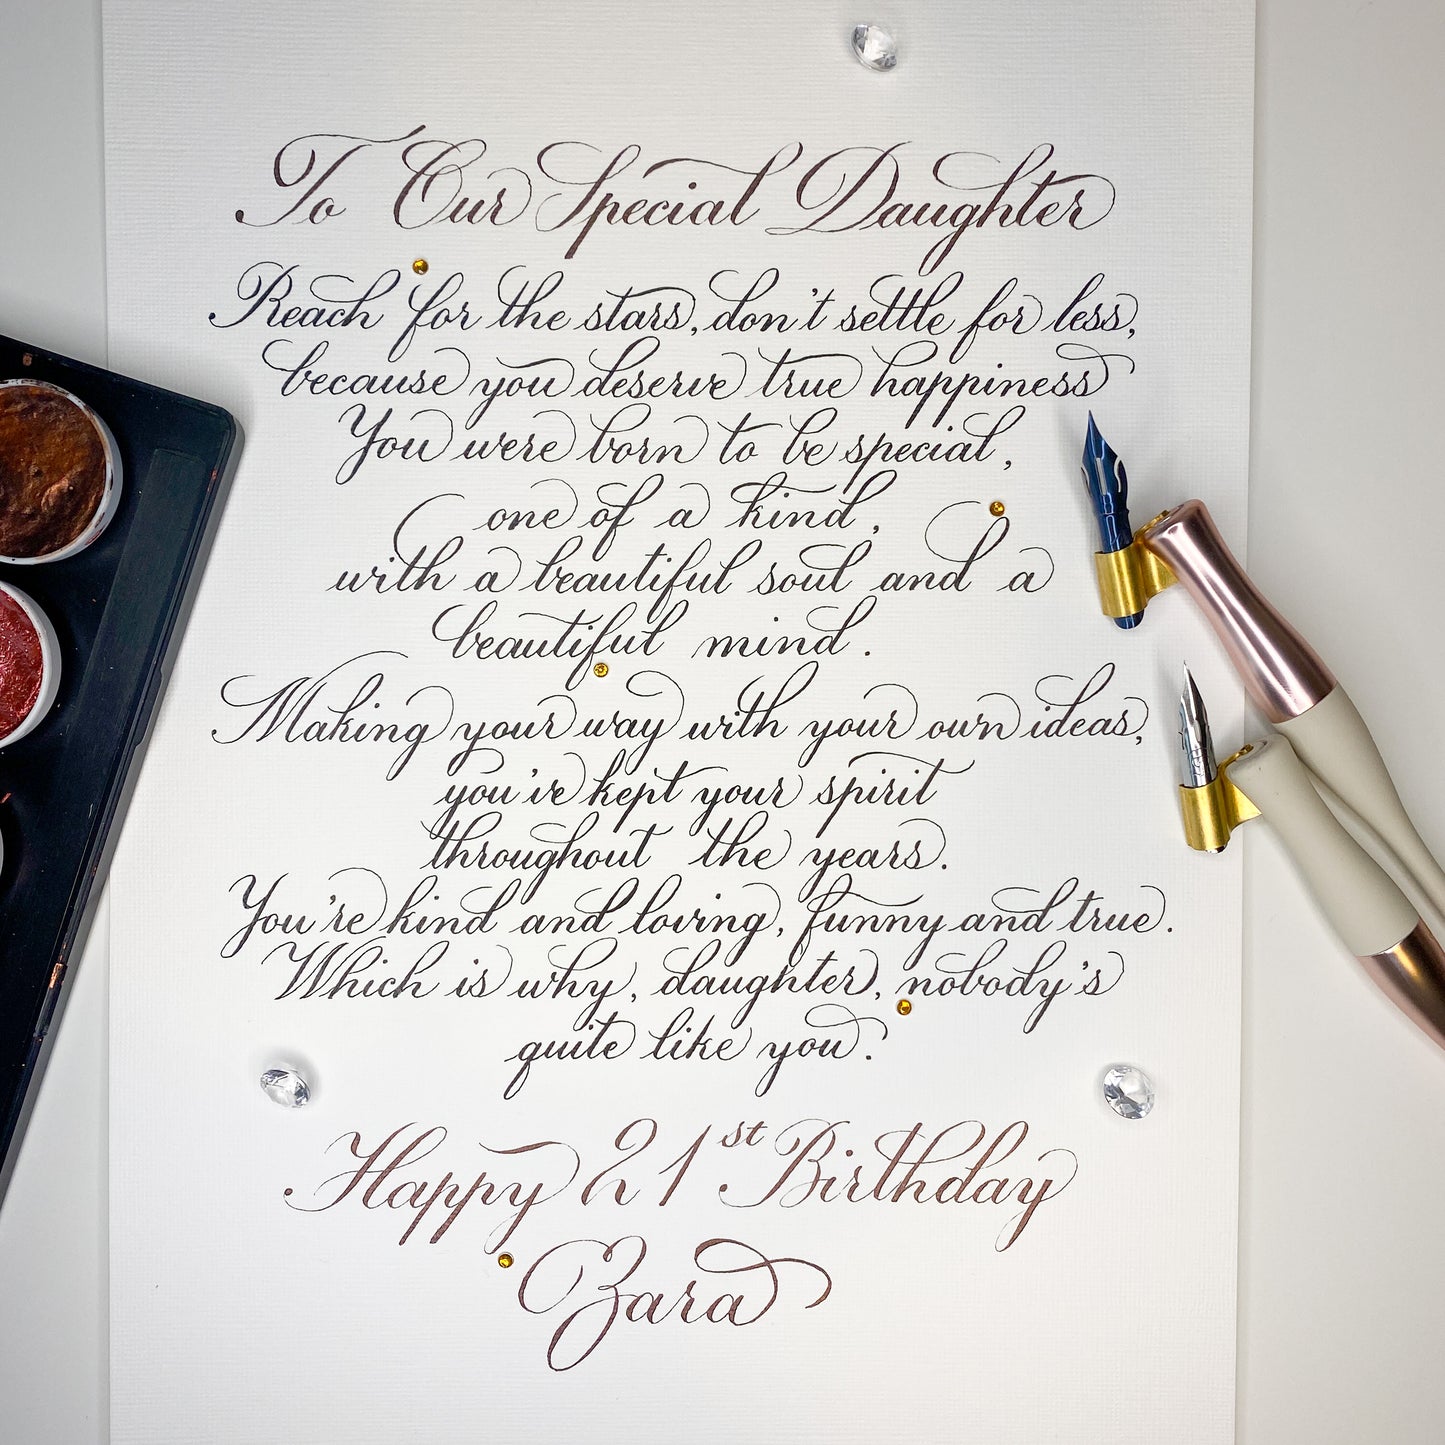 To Our Special Daughter
Reach for the stars, don't settle for less,
because you deserve true happiness
You were born to be special,
one of a kind,
with a beautiful soul and a
beautiful mind.
Making your way with your own ideas,
you've kept your spirit
throughout the years.
You're kind and loving, funny and true.
Which is why, daughter, nobody's
quite like you.
Happy 21st Birthday
Zara